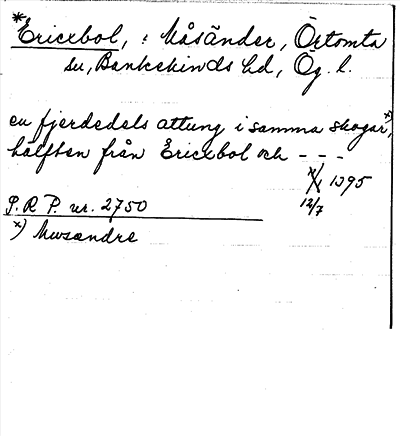 *Ericxbol, : Måsänder, Örtomta
sn, Bankekinds hd, Ög. l.
en fjerdedels attung i samma skogar x),
hälften från Ericxbol och - - -
1395
12/7
S.R.P. nr. 2750
x) Mwsandre